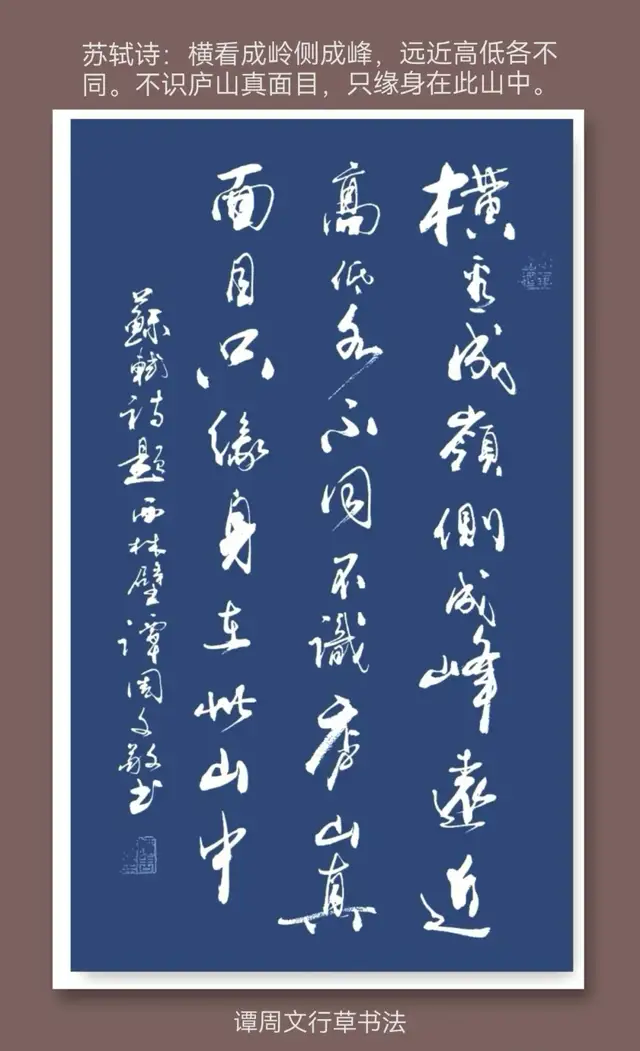 苏轼诗：横看成岭侧成峰，远近高低各不
同。不识庐山真面目，只缘身在此山中。
横看成嶺側成峰遠近
高低各不同不識庐山真
面目只缘身在此山中
蘇軾诗题西林壁谭周文敬书
谭周文行草书法